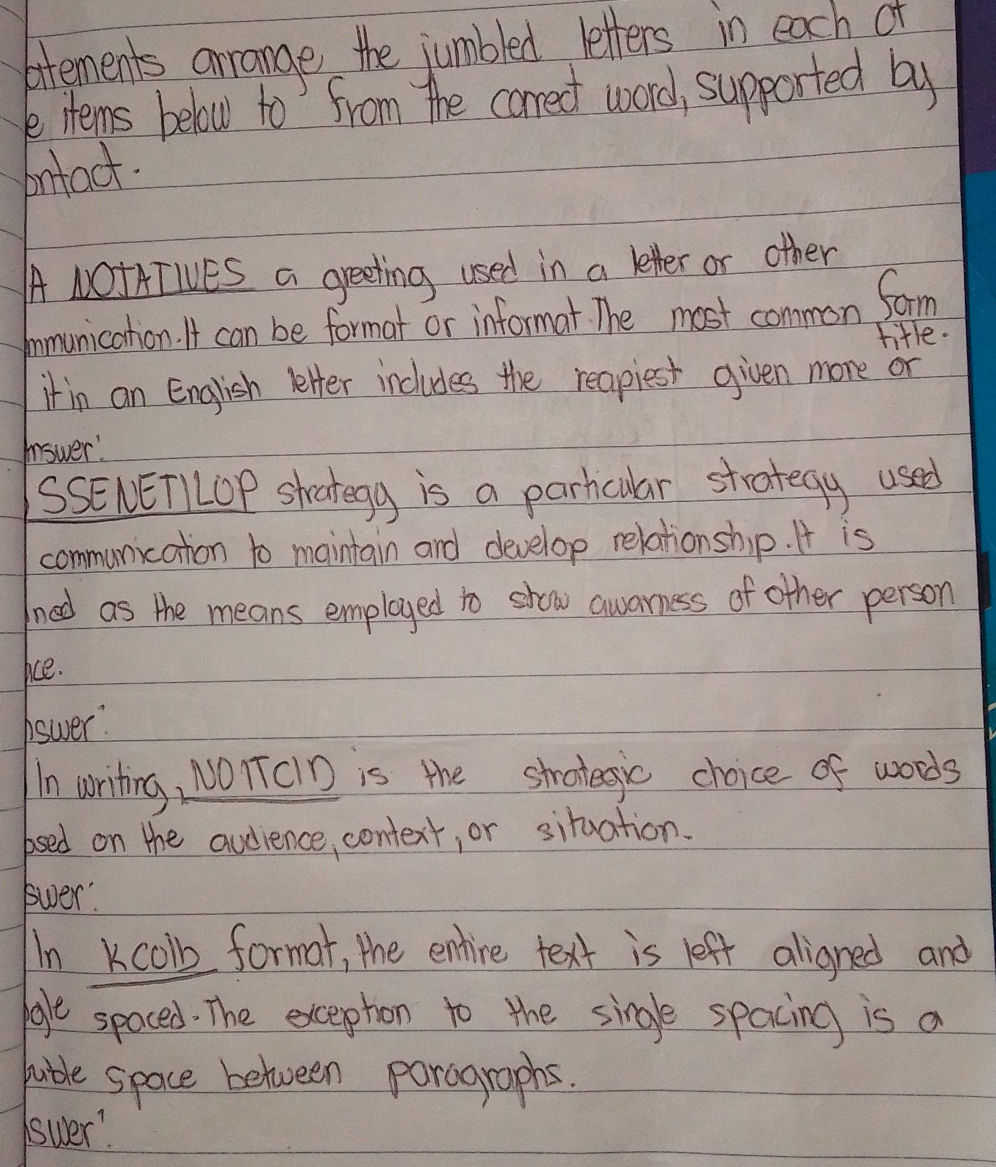 atements arrange the jumbled letters in each of
e items below to from the correct word, supported by
ontact.
A NOTATIVES a greeting used in a letter or other
mmunication. It can be format or informat. The most common form
title.
it in an English letter includes the reapiest given more or
nswer:
SSENETILOP strategy is a particular strategy used
communication to maintain and develop relationship. It is
ned as the means employed to show awarness of other person
ace.
nswer:
In writing, NOITCID is the strategic choice of words
ased on the audience, context, or situation.
swer:
In Kcolb format, the entire text is left aligned and
ngle spaced. The exception to the single spacing is a
ouble space between paragraphs.
swer: